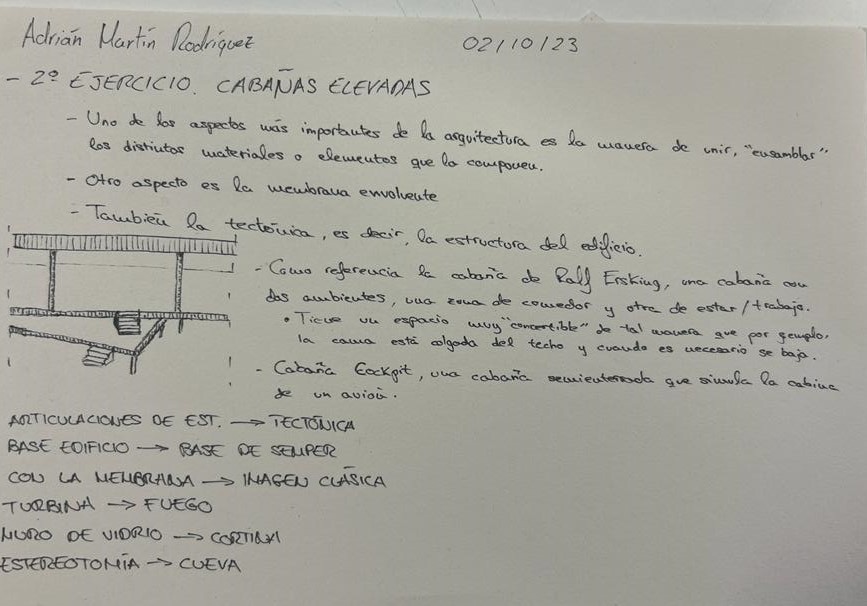 Adrián Martín Rodríguez 02/10/23
- 2º EJERCICIO. CABAÑAS ELEVADAS
- Uno de los aspectos más importantes de la arquitectura es la manera de unir, "ensamblar"
los distintos materiales o elementos que la componen.
- Otro aspecto es la membrana envolvente
- También la tectónica, es decir, la estructura del edificio.
- Como referencia la cabaña de Ralf Ersking, una cabaña con
dos ambientes, una zona de comedor y otra de estar/trabajo.
• Tiene un espacio muy "convertible" de tal manera que por ejemplo,
la cama está colgada del techo y cuando es necesario se baja.
- Cabaña Cockpit, una cabaña semienterrada que simula la cabina
de un avión.
ARTICULACIONES DE EST. → TECTÓNICA
BASE EDIFICIO → BASE DE SEMPER
CON LA MEMBRANA → IMAGEN CLÁSICA
TURBINA → FUEGO
MURO DE VIDRIO → CORTINA
ESTEREOTOMÍA → CUEVA